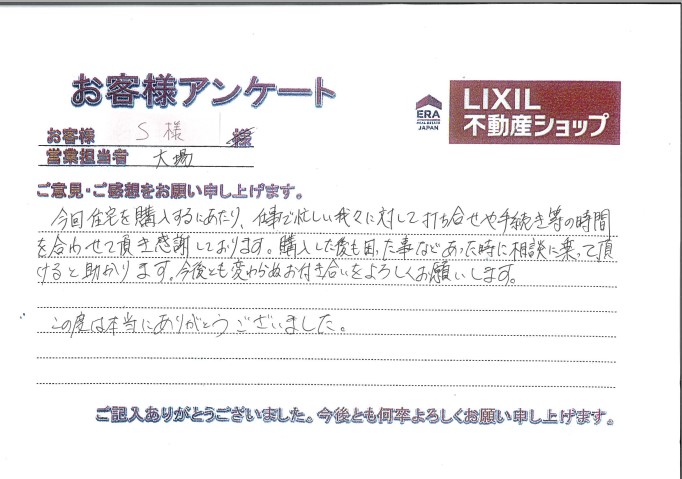 お客様アンケート
ERA
REAL ESTATE
JAPAN
LIXIL
不動産ショップ
お客様 S 様 様
営業担当者 大場
ご意見・ご感想をお願い申し上げます。
今回住宅を購入するにあたり、仕事で忙しい我々に対して打ち合せや手続き等の時間
を合わせて頂き感謝しております。購入した後も困った事などあった時に相談に乗って頂
けると助かります。今後とも変わらぬお付き合いをよろしくお願いします。
この度は本当にありがとうございました。
ご記入ありがとうございました。今後とも何卒よろしくお願い申し上げます。